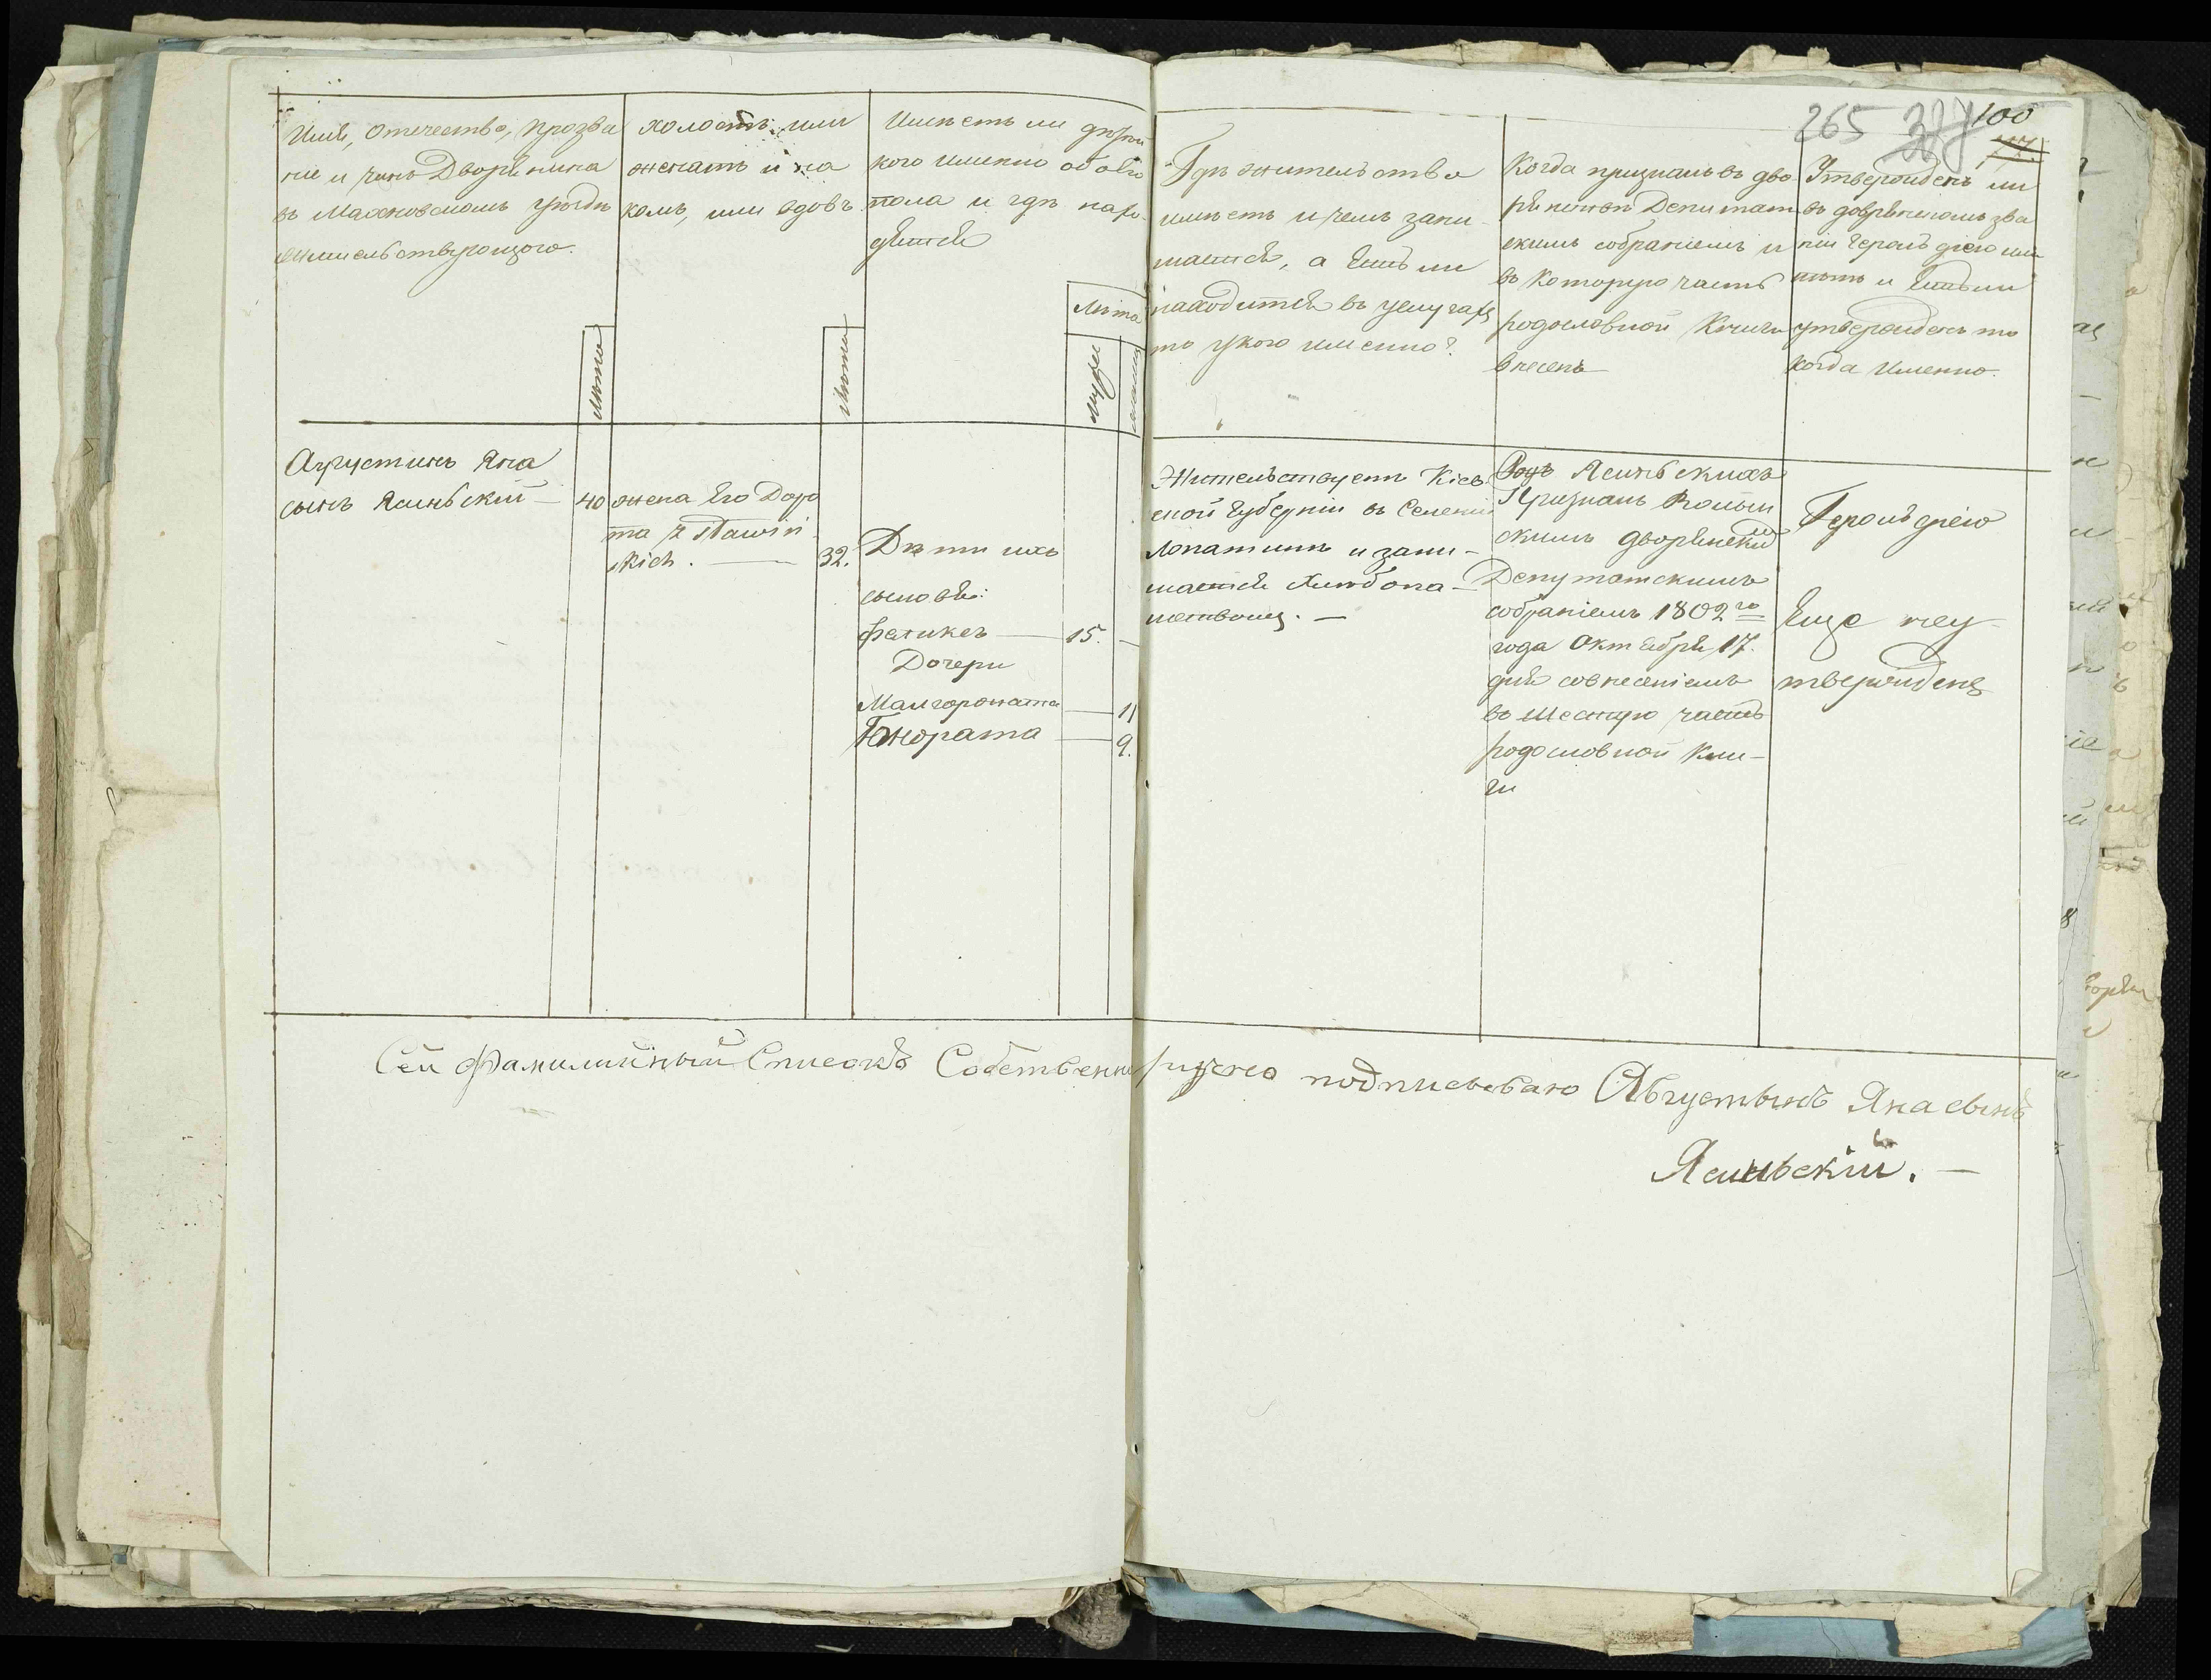 265 327 100
Имя, Отечество, прозва
ние и чинъ Дворянина
въ Махновскомъ уѣздѣ
жительствующого.
Лѣта
холостъ, или
женатъ и на
комъ, или вдовъ
Лѣта
Имѣетъ ли дѣтей
кого именно обоего
пола и где нахо-
дятся
Лѣта
мужеска
женска
Гдѣ жительство
имѣетъ и чемъ зани-
мается, а Естьли
находится въ услугахъ
то укого именно?
Когда признанъ въ дво-
рянствѣ Депутат
скимъ собраніемъ и
въ которую часть
родословной Книги
внесенъ
Утвержденъ ли
въ дворянскомъ зва
ніи Герольдіею или
нѣтъ и Естьли
утвержденъ то
когда Именно.
Августинъ Яна
сынъ Ясинскій — 40
жена Его Доро
та z Stawiń
skich. — 32.
Дѣти ихъ
сыновя:
Феликсъ — 15. —
Дочери
Малгоржата — 11
Гонората — 9.
Жительствуетъ Кіев-
ской Губерніи въ Селеніи
Лопатинѣ и зани-
мается Хлѣбопа-
шествомъ. —
Родъ Ясинскихъ
Признанъ Волын
скимъ дворянским
Депутатскимъ
собраніемъ 1802го
года Октября 17.
дня совнесеніемъ
въ Шестую часть
родословной Кни-
ги
Герольдіею
Еще неу-
твержденъ
Сей Фамилійный Списокъ Собственноручно подписываю Августынъ Яна сынъ
Ясинскій. —